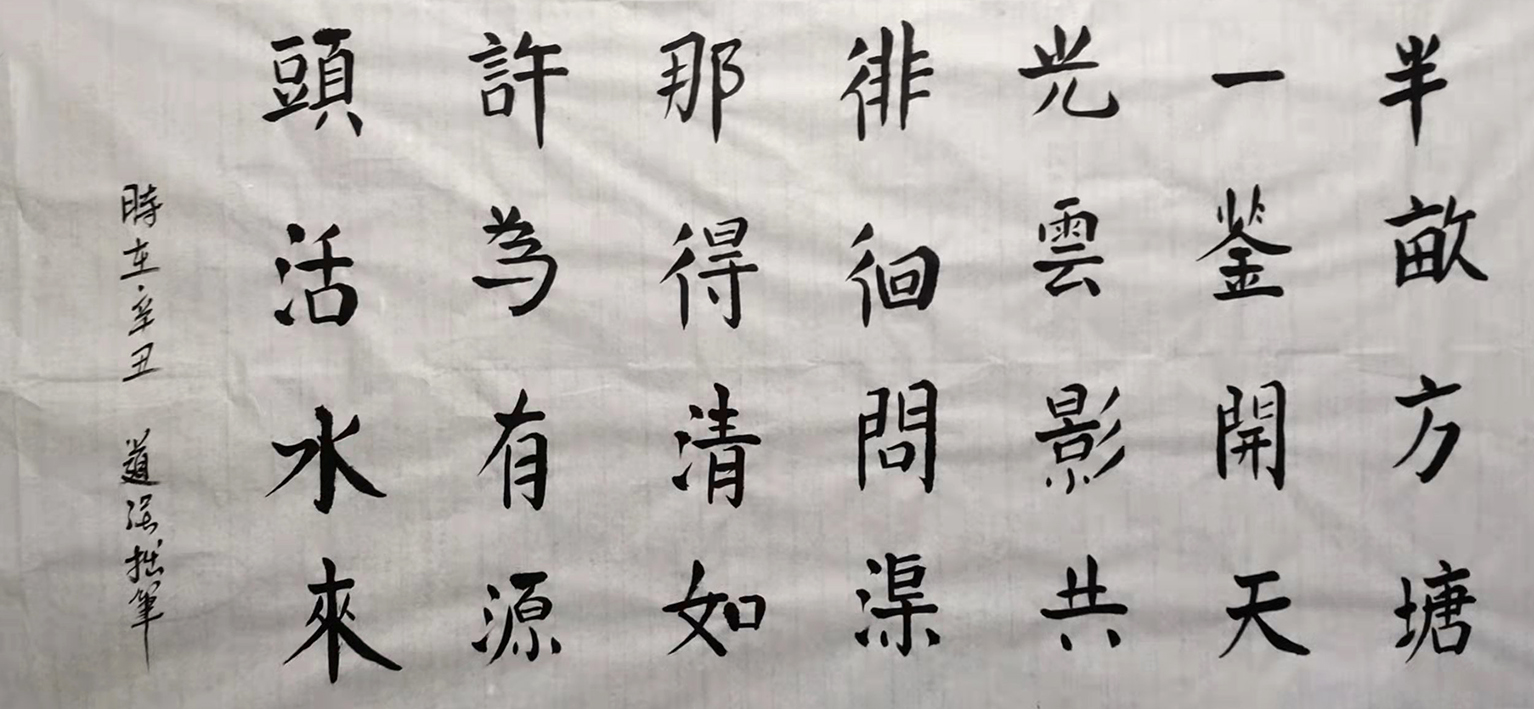 半畝方塘
一鉴開天
光雲影共
徘徊問渠
那得清如
許為有源
頭活水來
時在辛丑 道 拙筆